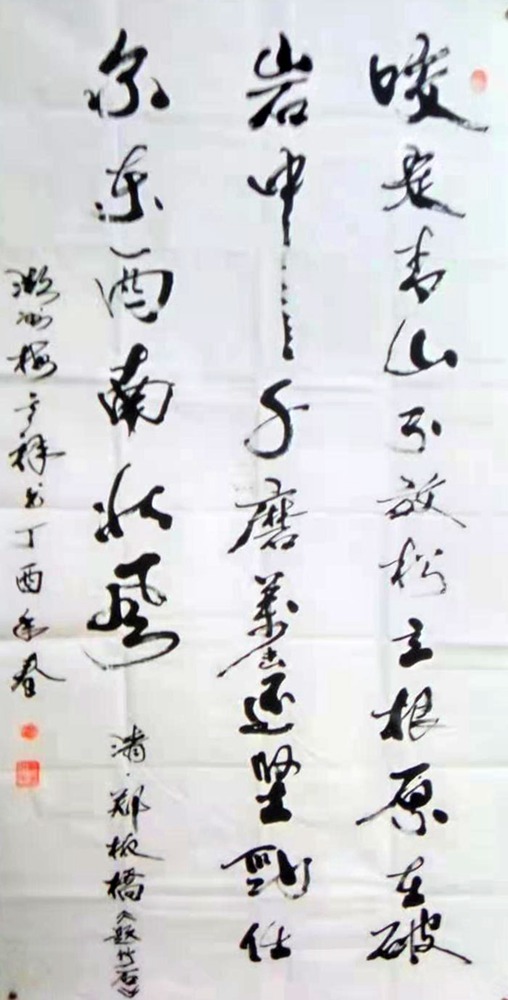 咬定青山不放松立根原在破
岩中千磨萬击还坚劲任
尔东西南北风
清·郑板橋《题竹石》
州梅祥书丁酉年春